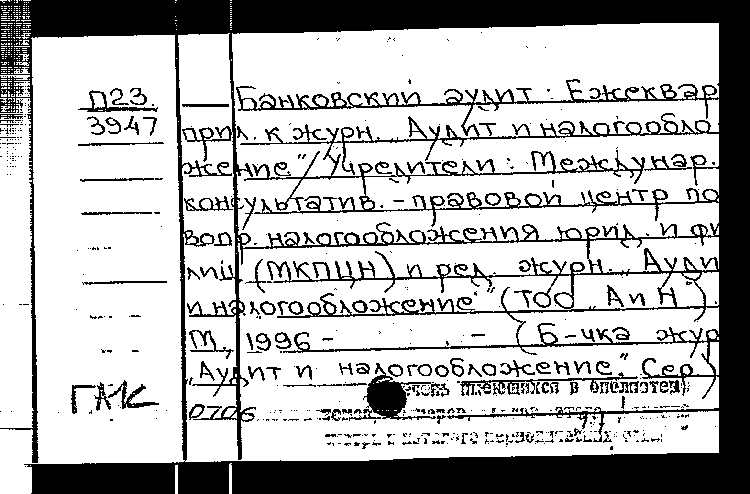 П23.
3947
Банковский аудит: Ежеквар
прил. к журн. „Аудит и налогообло
жение" / Учредители: Междунар.
консультатив. - правовой центр по
вопр. налогообложения юрид. и фи
лиц (МКПЦН) и ред. журн. „Ауди
и налогообложение" (ТОО „АиН").
М., 1996 - . - (Б-чка жур
„Аудит и налогообложение." Сер)
имеющихся в библиотеке
0706
каталоге периодических